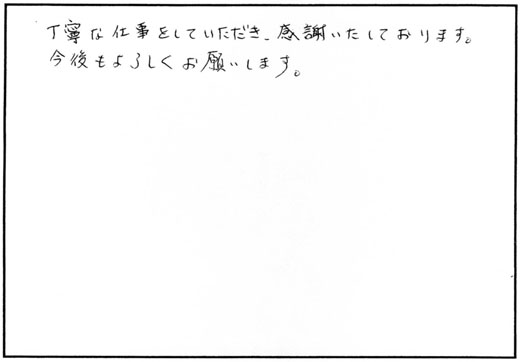 丁寧な仕事をしていただき、感謝いたしております。
今後もよろしくお願いします。